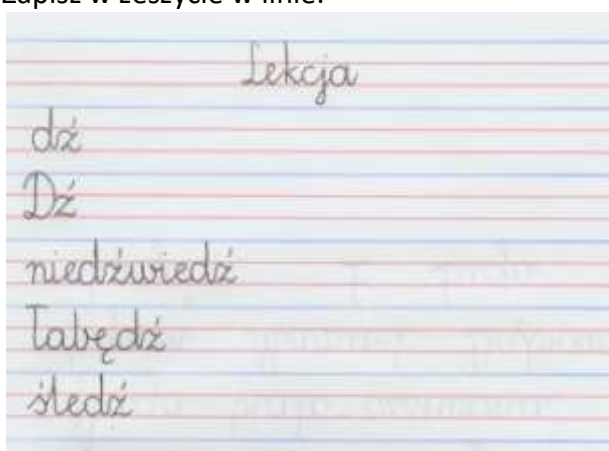 Zapisz w zeszycie w linie:
Lekcja
dź
Dź
niedźwiedź
łabędź
śledź